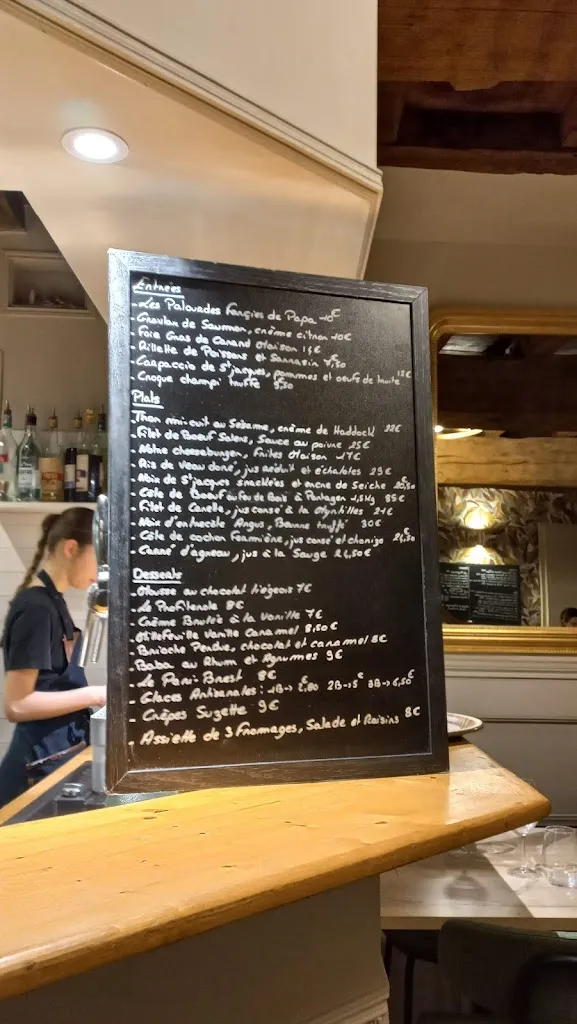 Entrées
- Les Palourdes façon de Papa 10€
- Gravlax de Saumon, crème citron 10€
- Foie Gras de Canard Maison 14€
- Rillette de Poissons et Sarrasin 7,50
- Carpaccio de St jacques, pommes et oeufs de truite 12€
- Croque champi truffe 9,50
Plats
- Thon mi-cuit au Sésame, crème de Haddock 22€
- Filet de Boeuf Salers, Sauce au poivre 25€
- Notre cheeseburger, Frites Maison 17€
- Ris de Veau doré, jus réduit et échalotes 29€
- Noix de St jacques snackées et encre de Seiche
- Côte de Boeuf au Feu de Bois à Partager 1,5kg 85€
- Filet de Canette, jus corsé à la Myrtilles 21€
- Noix d'entrecôte Angus, Beurre truffé 30€
- Côte de cochon Fermière, jus corsé et chorizo
- Carré d'agneau, jus à la Sauge 24,50€
Desserts
- Mousse au chocolat liégeois 7€
- La Profiterole 8€
- Crème Brulée à la Vanille 7€
- Millefeuille Vanille Caramel 8,50€
- Brioche Perdue, chocolat et caramel 8€
- Baba au Rhum et Agrumes 9€
- Le Paris Brest 8€
- Glaces Artisanales : 1B → 2,80€ 2B → 5€ 3B → 6,50€
- Crêpes Suzette 9€
- Assiette de 3 Fromages, Salade et Raisins 8€